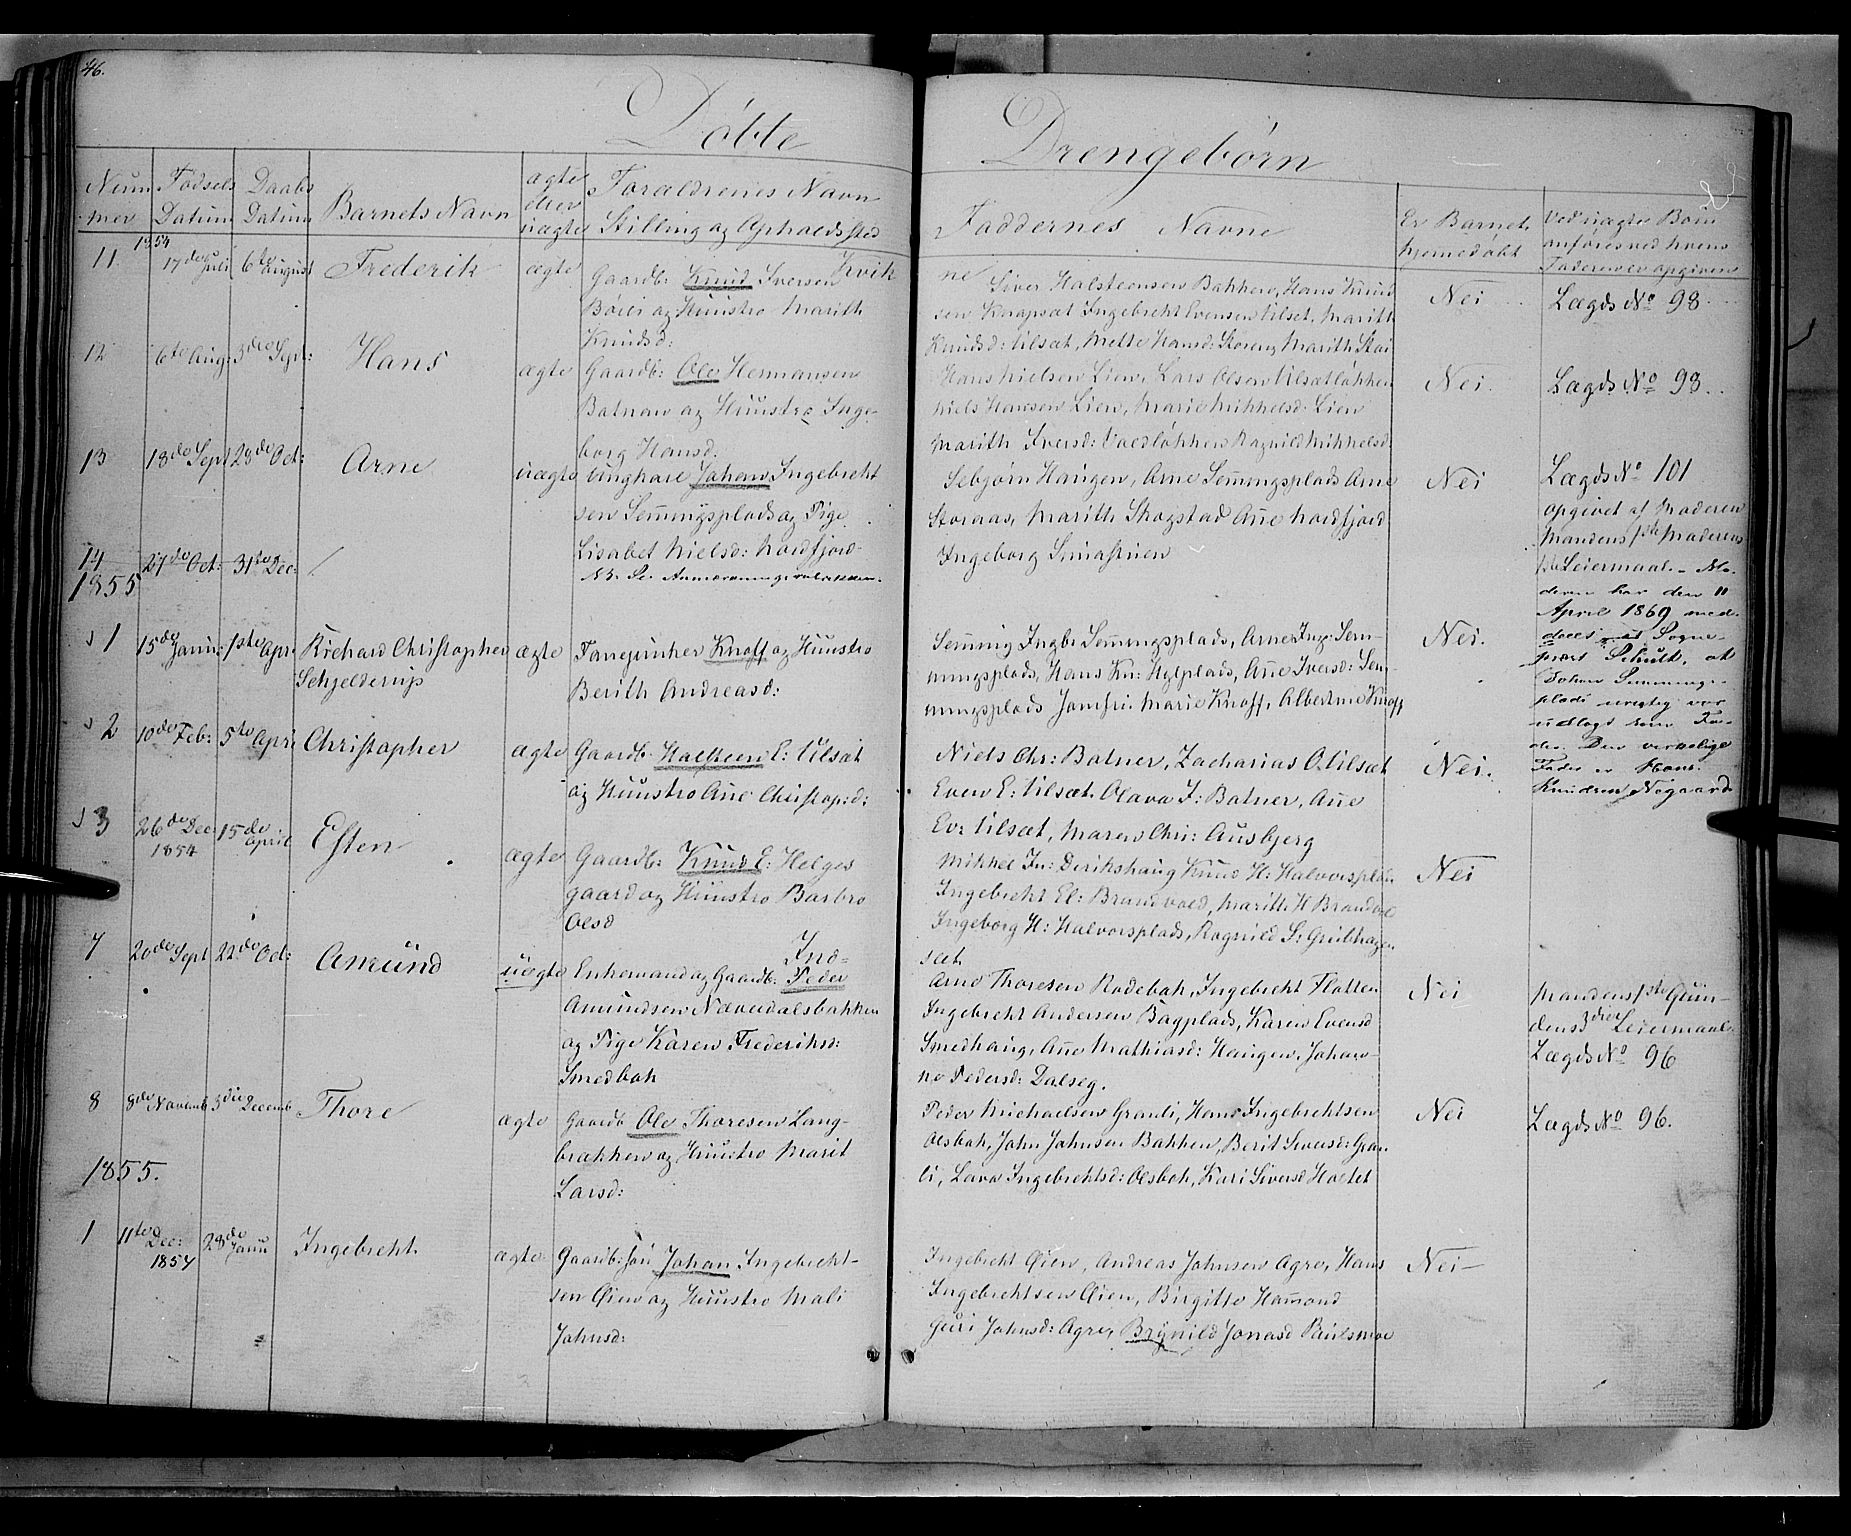 46.
Døbte
Drengebørn
Num
mer
Fødsels
Datum
Daabs
Datum
Barnets Navn
ægte
eller
uægte
Forældrenes Navn
Stilling og Opholdssted
Faddernes Navne
Er Barnet
hjemmedøbt
Ved uægte Børn
anføres ved hvem
Faderen er opgiven
1854
Kvik
ne
11 17de Juli 6te August Frederik ægte Gaardb: Knud Iversen
Bøiei og Huustro Marith
Knudsd:
Siver Halsteensen Bakken, Hans Knud
sen Knapsæt Ingebreht Evensen Uilset, Marith
Knudsd: Uilsæt, Mette Hansd: Marith
Nei
Lægds No 98
12 6te Aug: 3die Sept: Hans ægte Gaardb: Ole Hermansen
Balnaw og Huustro Inge-
borg Hansd.
Hans Nielsen Lien, Lars Olsen Uilsætløkken
Niels Hansen Lien, Marie Mikkelsd: Lien
Marith Iversd: Ragnild Mikkelsd:
Nei.
Lægds No 98.
13 18de Sept 28de Oct: Arne uægte Ungkarl Johan Ingebreht
sen Semmingsplads og Pige
Lisabet Nielsd: Nordfjord
NB. Se Anmærkningsrubrikken.
Sebjørn Haugen, Arne Semmingsplads Arne
Storaas, Marith Skogstad Ane Nordfjord
Ingeborg
Nei
Lægds No 101
opgivet af Moderen
Mandens 1ste Moderens
Leiermaal. - Mo-
deren har den 11
April 1869 med-
deelt Sogne-
præst Schulz, at
Johan Semmings-
plads urigtig var
udlagt som Fa-
der. Den virkelige
Fader er Hans
Knudsen Nygaard
14 27de Oct: 31te Dec: /
1855
1 15de Janu: 1ste Apr: Richard Christopher
Schjelderup
ægte Fanejunker Knoff og Huustro
Berith Andreasd:
Semming Ingb: Semmingsplads, Arne Ing: Sem-
mingsplads, Hans Kn: Hylplads, Ane Iversd: Sem-
mingsplads Jomfru Marie Knoff, Albertine Knoff
Nei.
2 10de Feb: 5te April Christopher ægte Gaardb. Halsteen E: Uilsæt
og Huustro Ane Christopd:
Niels Chr: Balner, Zacharias O. Uilsæt
Even E: Uilsæt, Olava J: Balner, Ane
Ev: Uilsæt, Maren Chri: Ausbjerg
Nei.
3 26de Dec: 1854 15de April Esten ægte Gaardb: Knud E: Helges
gaard og Huustro Barbro
Olsd
Mikkel In: Derikshaug Knud H: Halvorsplads
Ingebreht El: Brandvold, Marith H Brandvold
Ingeborg H: Halvorsplads, Ragnild S: Grübhagen
sæt
Nei
Ind-
7 20de Sept 22de Oct: Amund uægte Enkemand og Gaardb: Peder
Amundsen Næverdalsbakken
og Pige Karen Frederiksd:
Smedbak
Arne Thoresen Rødebak, Ingebreht Flatten
Ingebreht Andersen Bagplads, Karen Evensd
Smedhaug, Ane Mathiasd: Haugen, Johan-
ne Pedersd: Dalseg.
Nei
Mandens 1ste Qvin-
dens 3die Leiermaal.
Lægds No 96
8 8de Novemb 3die Decemb Thore ægte Gaardb Ole Thoresen Lang-
brækken og Huustro Marit
Larsd:
Peder Michaelsen Granli, Hans Ingebrehtsen
Olsbak, John Johnsen Bakken, Berit Siversd: Gran
li, Lava Ingebrehtsd: Olsbak, Kari Siversd Hoitet
Nei
Lægds No 96.
1855.
1 11te Dec: 1854 28de Janu Ingebreht ægte Gaardb: søn Johan Ingebreht-
sen Øien og Huustro Mali
Johnsd:
Ingebreht Øien, Andreas Johnsen Agre, Hans
Ingebrehtsen Øien, Birgitte Hamond
Guri Johnsd: Agre, Brynild Jonasd
Nei